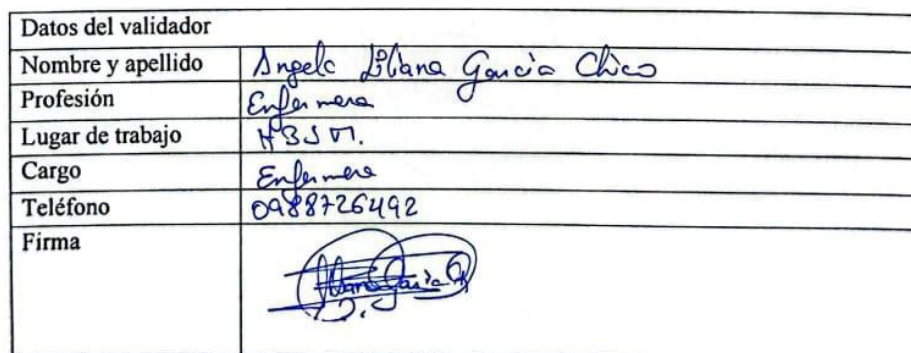 Datos del validador
Nombre y apellido Angela Liliana García Chico
Profesión Enfermera
Lugar de trabajo HBSM.
Cargo Enfermera
Teléfono 0988726492
Firma Liliana García